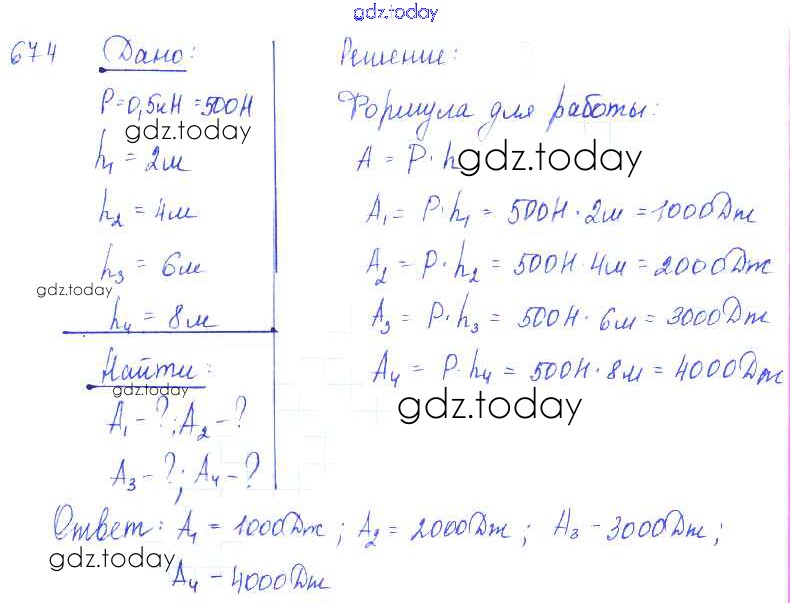 gdz.today
674 Дано:
P = 0,5кН = 500Н
gdz.today
h₁ = 2м
h₂ = 4м
h₃ = 6м
gdz.today
h₄ = 8м
Найти:
gdz.today
A₁ - ?; A₂ - ?
A₃ - ?; A₄ - ?
Решение:
Формула для работы:
A = P · h
gdz.today
A₁ = P · h₁ = 500Н · 2м = 1000Дж
A₂ = P · h₂ = 500Н · 4м = 2000Дж
A₃ = P · h₃ = 500Н · 6м = 3000Дж
A₄ = P · h₄ = 500Н · 8м = 4000Дж
gdz.today
Ответ: A₁ = 1000Дж; A₂ = 2000Дж; A₃ - 3000Дж;
gdz.today
A₄ - 4000Дж